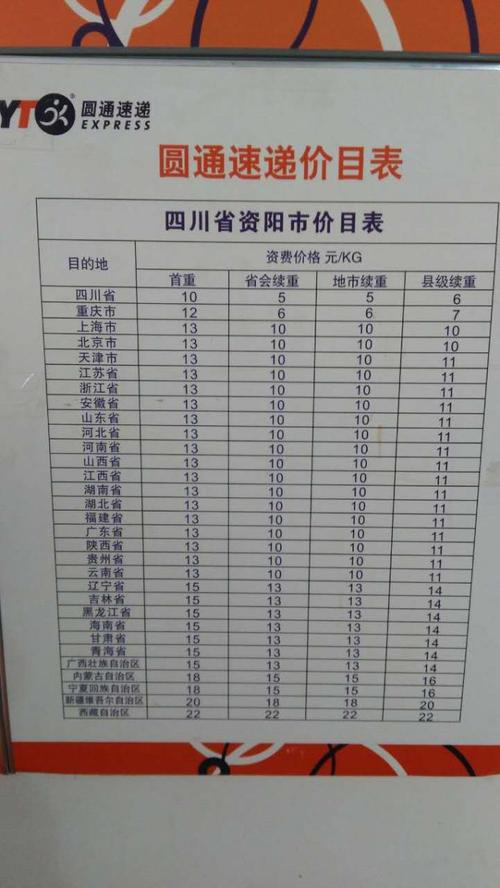 YTO
圆通速递
EXPRESS
圆通速递价目表
四川省资阳市价目表
目的地 资费价格 元/KG
首重 省会续重 地市续重 县级续重
四川省 10 5 5 6
重庆市 12 6 6 7
上海市 13 10 10 10
北京市 13 10 10 10
天津市 13 10 10 11
江苏省 13 10 10 11
浙江省 13 10 10 11
安徽省 13 10 10 11
山东省 13 10 10 11
河北省 13 10 10 11
河南省 13 10 10 11
山西省 13 10 10 11
江西省 13 10 10 11
湖南省 13 10 10 11
湖北省 13 10 10 11
福建省 13 10 10 11
广东省 13 10 10 11
陕西省 13 10 10 11
贵州省 13 10 10 11
云南省 13 10 10 11
辽宁省 15 13 13 14
吉林省 15 13 13 14
黑龙江省 15 13 13 14
海南省 15 13 13 14
甘肃省 15 13 13 14
青海省 15 13 13 14
广西壮族自治区 15 13 13 14
内蒙古自治区 18 15 15 16
宁夏回族自治区 18 15 15 16
新疆维吾尔自治区 20 18 18 20
西藏自治区 22 22 22 22